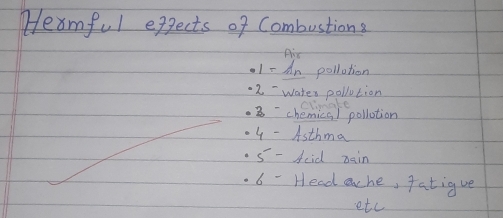 Hearmful effects of Combustions
Air
.1 - An pollution
.2 - Water pollution
Climate
.3 - chemical pollution
.4 - Asthma
.5 - Acid rain
.6 - Head ache, Fatigue
etc